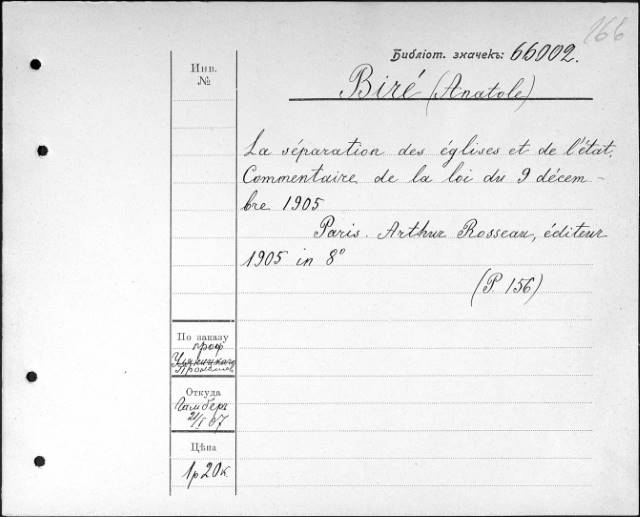 166
Библіот. значекъ: 66002.
Biré (Anatole)
Инв.
№
La séparation des églises et de l'état.
Commentaire de la loi du 9 décem-
bre 1905
Paris. Arthur Rosseau, éditeur
1905 in 8°
(P. 156)
По заказу
проф
Откуда
Гамберъ
21/I 07
Цѣна
1 р 20 к.